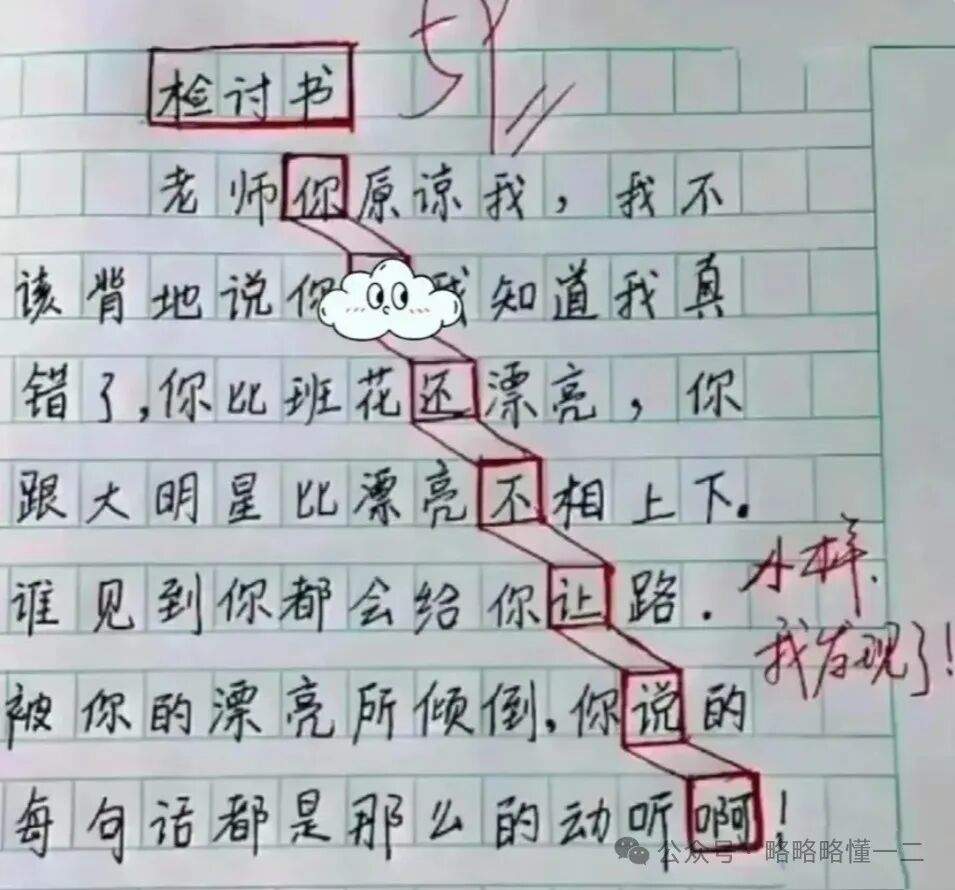 59
检讨书
老师你原谅我，我不
该背地说你我知道我真
错了，你比班花还漂亮，你
跟大明星比漂亮不相上下.
谁见到你都会给你让路.
被你的漂亮所倾倒,你说的
每句话都是那么的动听啊！
小样.
我发现了！
公众号·略略略懂一二